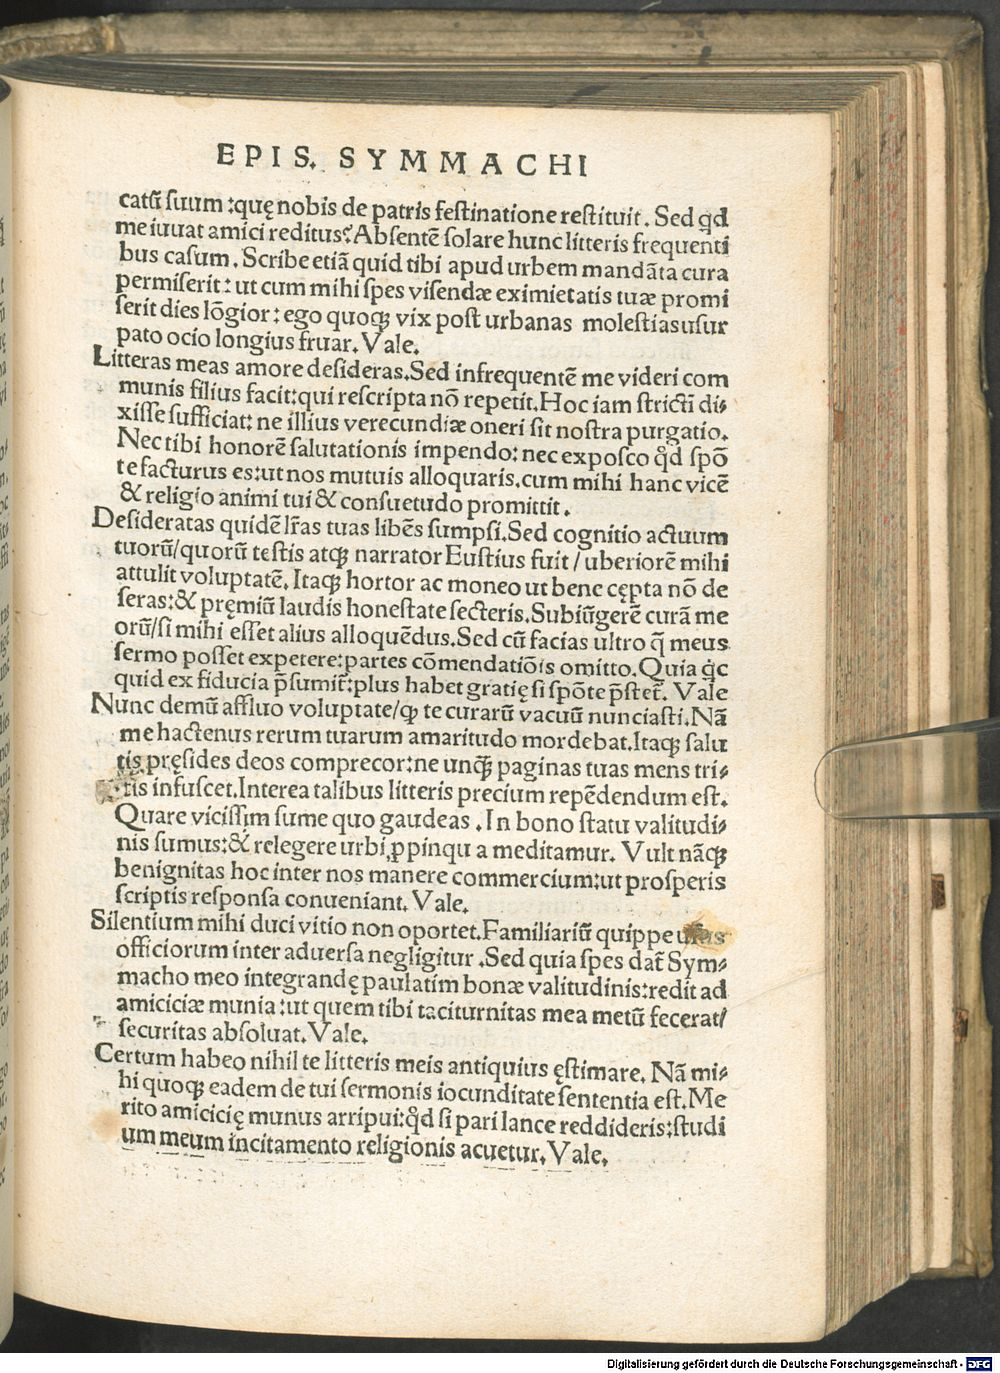 EPIS. SYMMACHI
catū suum : quę nobis de patris festinatione restituit. Sed qd
me iuuat amici reditus? Absentē solare hunc litteris frequenti
bus casum. Scribe etiā quid tibi apud urbem mandāta cura
permiserit : ut cum mihi spes visendæ eximietatis tuæ promi
serit dies lōgior : ego quoqꝫ vix post urbanas molestias usur
pato ocio longius fruar. Vale.
Litteras meas amore desideras. Sed infrequentē me videri com
munis filius facit: qui rescripta nō repetit. Hoc iam stricti di⸗
xisse sufficiat: ne illius verecundiæ oneri sit nostra purgatio.
Nec tibi honorē salutationis impendo: nec exposco qđ spō
te facturus es: ut nos mutuis alloquaris. cum mihi hanc vicē
& religio animi tui & consuetudo promittit.
Desideratas quidē lr̄as tuas libēs sumpsi. Sed cognitio actuum
tuorū/quorū testis atqꝫ narrator Eustius fuit / uberiorē mihi
attulit voluptatē. Itaqꝫ hortor ac moneo ut bene cępta nō de
seras: & pręmiū laudis honestate secteris. Subiūgerē curā me
orū/si mihi esset alius alloquēdus. Sed cū facias ultro q̄ meus
sermo posset expetere: partes cōmendatiōis omitto. Quia qc
quid ex fiducia p̄sumit᷑: plus habet gratię si spōte p̄stet᷑. Vale
Nunc demū affluo voluptate/qꝫ te curarū vacuū nunciasti. Nā
me hactenus rerum tuarum amaritudo mordebat. Itaqꝫ salu
tis pręsides deos comprecor: ne unqꝫ̄ paginas tuas mens tri⸗
tis infuscet. Interea talibus litteris precium repēdendum est.
Quare vicissim sume quo gaudeas . In bono statu valitudi⸗
nis sumus: & relegere urbi ꝓpinqu a meditamur. Vult nāqꝫ
benignitas hoc inter nos manere commercium: ut prosperis
scriptis responsa conueniant. Vale.
Silentium mihi duci vitio non oportet. Familiariū quippe usus
officiorum inter aduersa negligitur . Sed quia spes dat᷑ Sym⸗
macho meo integrandę paulatim bonæ valitudinis: redit ad
amiciciæ munia : ut quem tibi taciturnitas mea metū fecerat/
securitas absoluat. Vale.
Certum habeo nihil te litteris meis antiquius ęstimare. Nā mi⸗
hi quoqꝫ eadem de tui sermonis iocunditate sententia est. Me
rito amicicię munus arripui: qđ si pari lance reddideris: studi
um meum incitamento religionis acuetur. Vale.
Digitalisierung gefördert durch die Deutsche Forschungsgemeinschaft - DFG